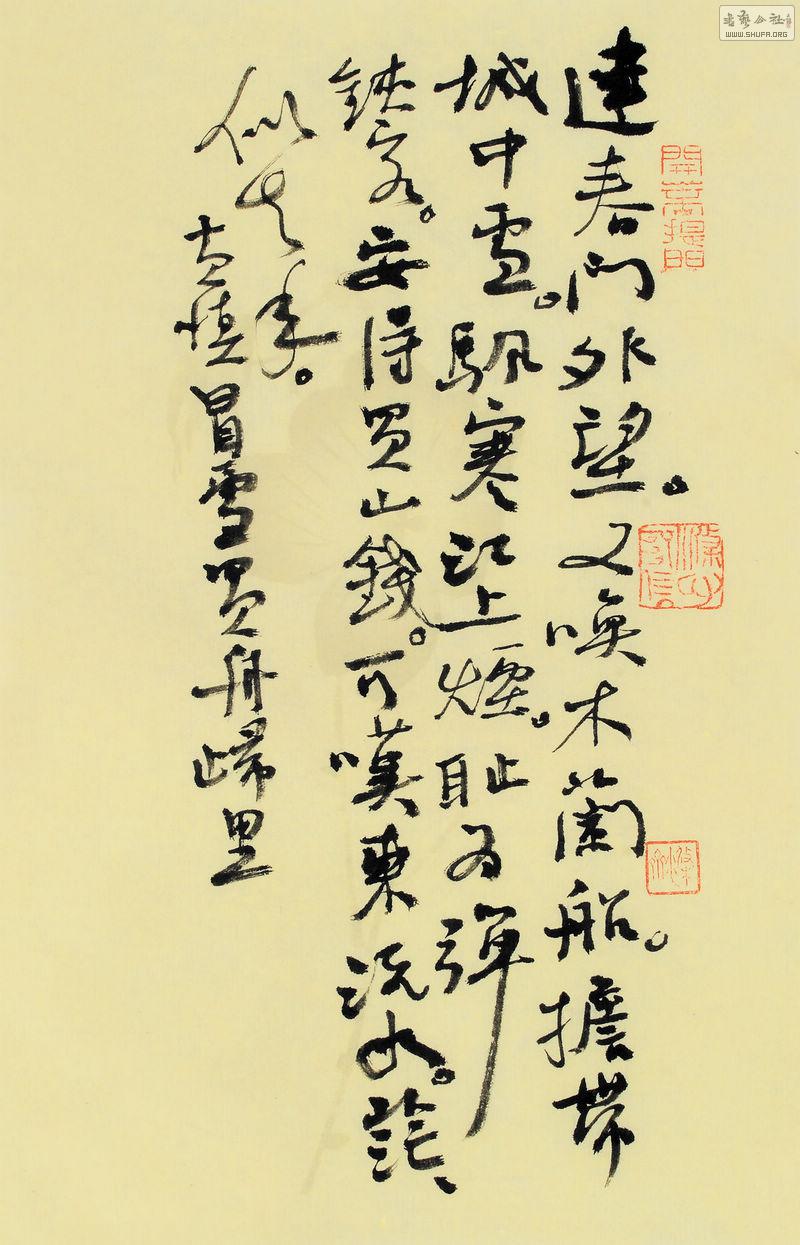 書藝公社
WWW.SHUFA.ORG
建春門外望。又喚木蘭船。擔帶
城中雪。颿寒江上煙。耻為彈
鋏客。安得買山錢。可嘆東流水。茫、
似去年。
黄慎冒雪買舟歸里